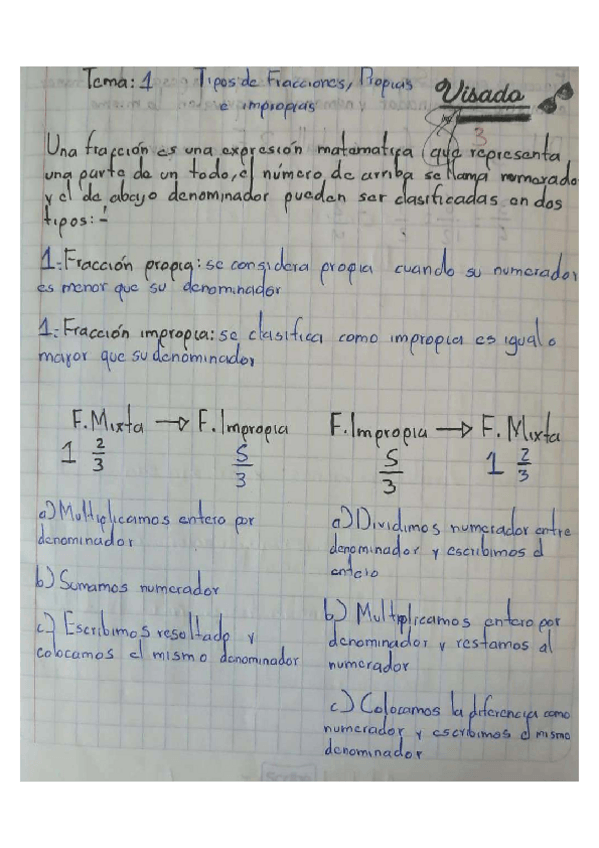 Tema: 1 Tipos de Fracciones, Propias
e impropias
Visado
3
Una fracción es una expresión matematica que representa
una parte de un todo, el número de arriba se llama numerado
y el de abayo denominador pueden ser clasificadas en dos
tipos:
1. Fracción propia: se considera propia cuando su numerador
es menor que su denominador
1. Fracción impropia: se clasifica como impropia es igual o
mayor que su denominador
F. Mixta → F. Impropia
1 2/3 5/3
a) Multiplicamos entero por
denominador
b) Sumamos numerador
c) Escribimos resoltado y
colocamos el mismo denominador
F. Impropia → F. Mixta
5/3 1 2/3
a) Dividimos numerador entre
denominador y escribimos el
entero
b) Multiplicamos entero por
denominador y restamos al
numerador
c) Colocamos la diferencia como
numerador y escribimos el mismo
denominador